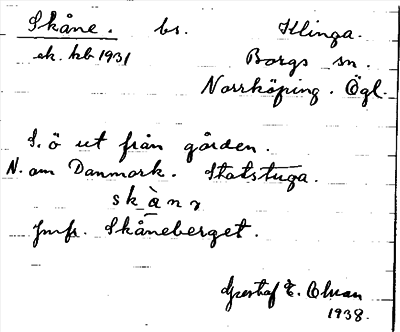 Skåne. bs. Klinga.
ek. kb 1931 Borgs sn.
Norrköping. Ögl.
S. ö ut från gården.
N. om Danmark. Statstuga.
skànɂ
Jmfr. Skåneberget.
Gustaf E. Olsson
1938.